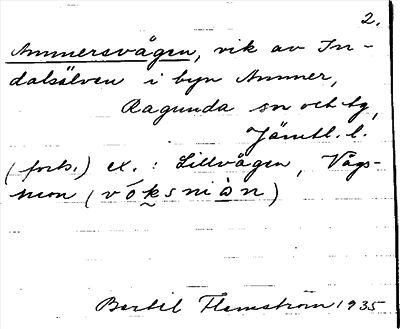 2.
Ammersvågen, vik av In-
dalsälven i byn Ammer,
Ragunda sn och tg,
Jämtl. l.
(forts.) ex. : Lillvågen, Vågs-
mon (vóksmòn)
Bertil Flemström 1935